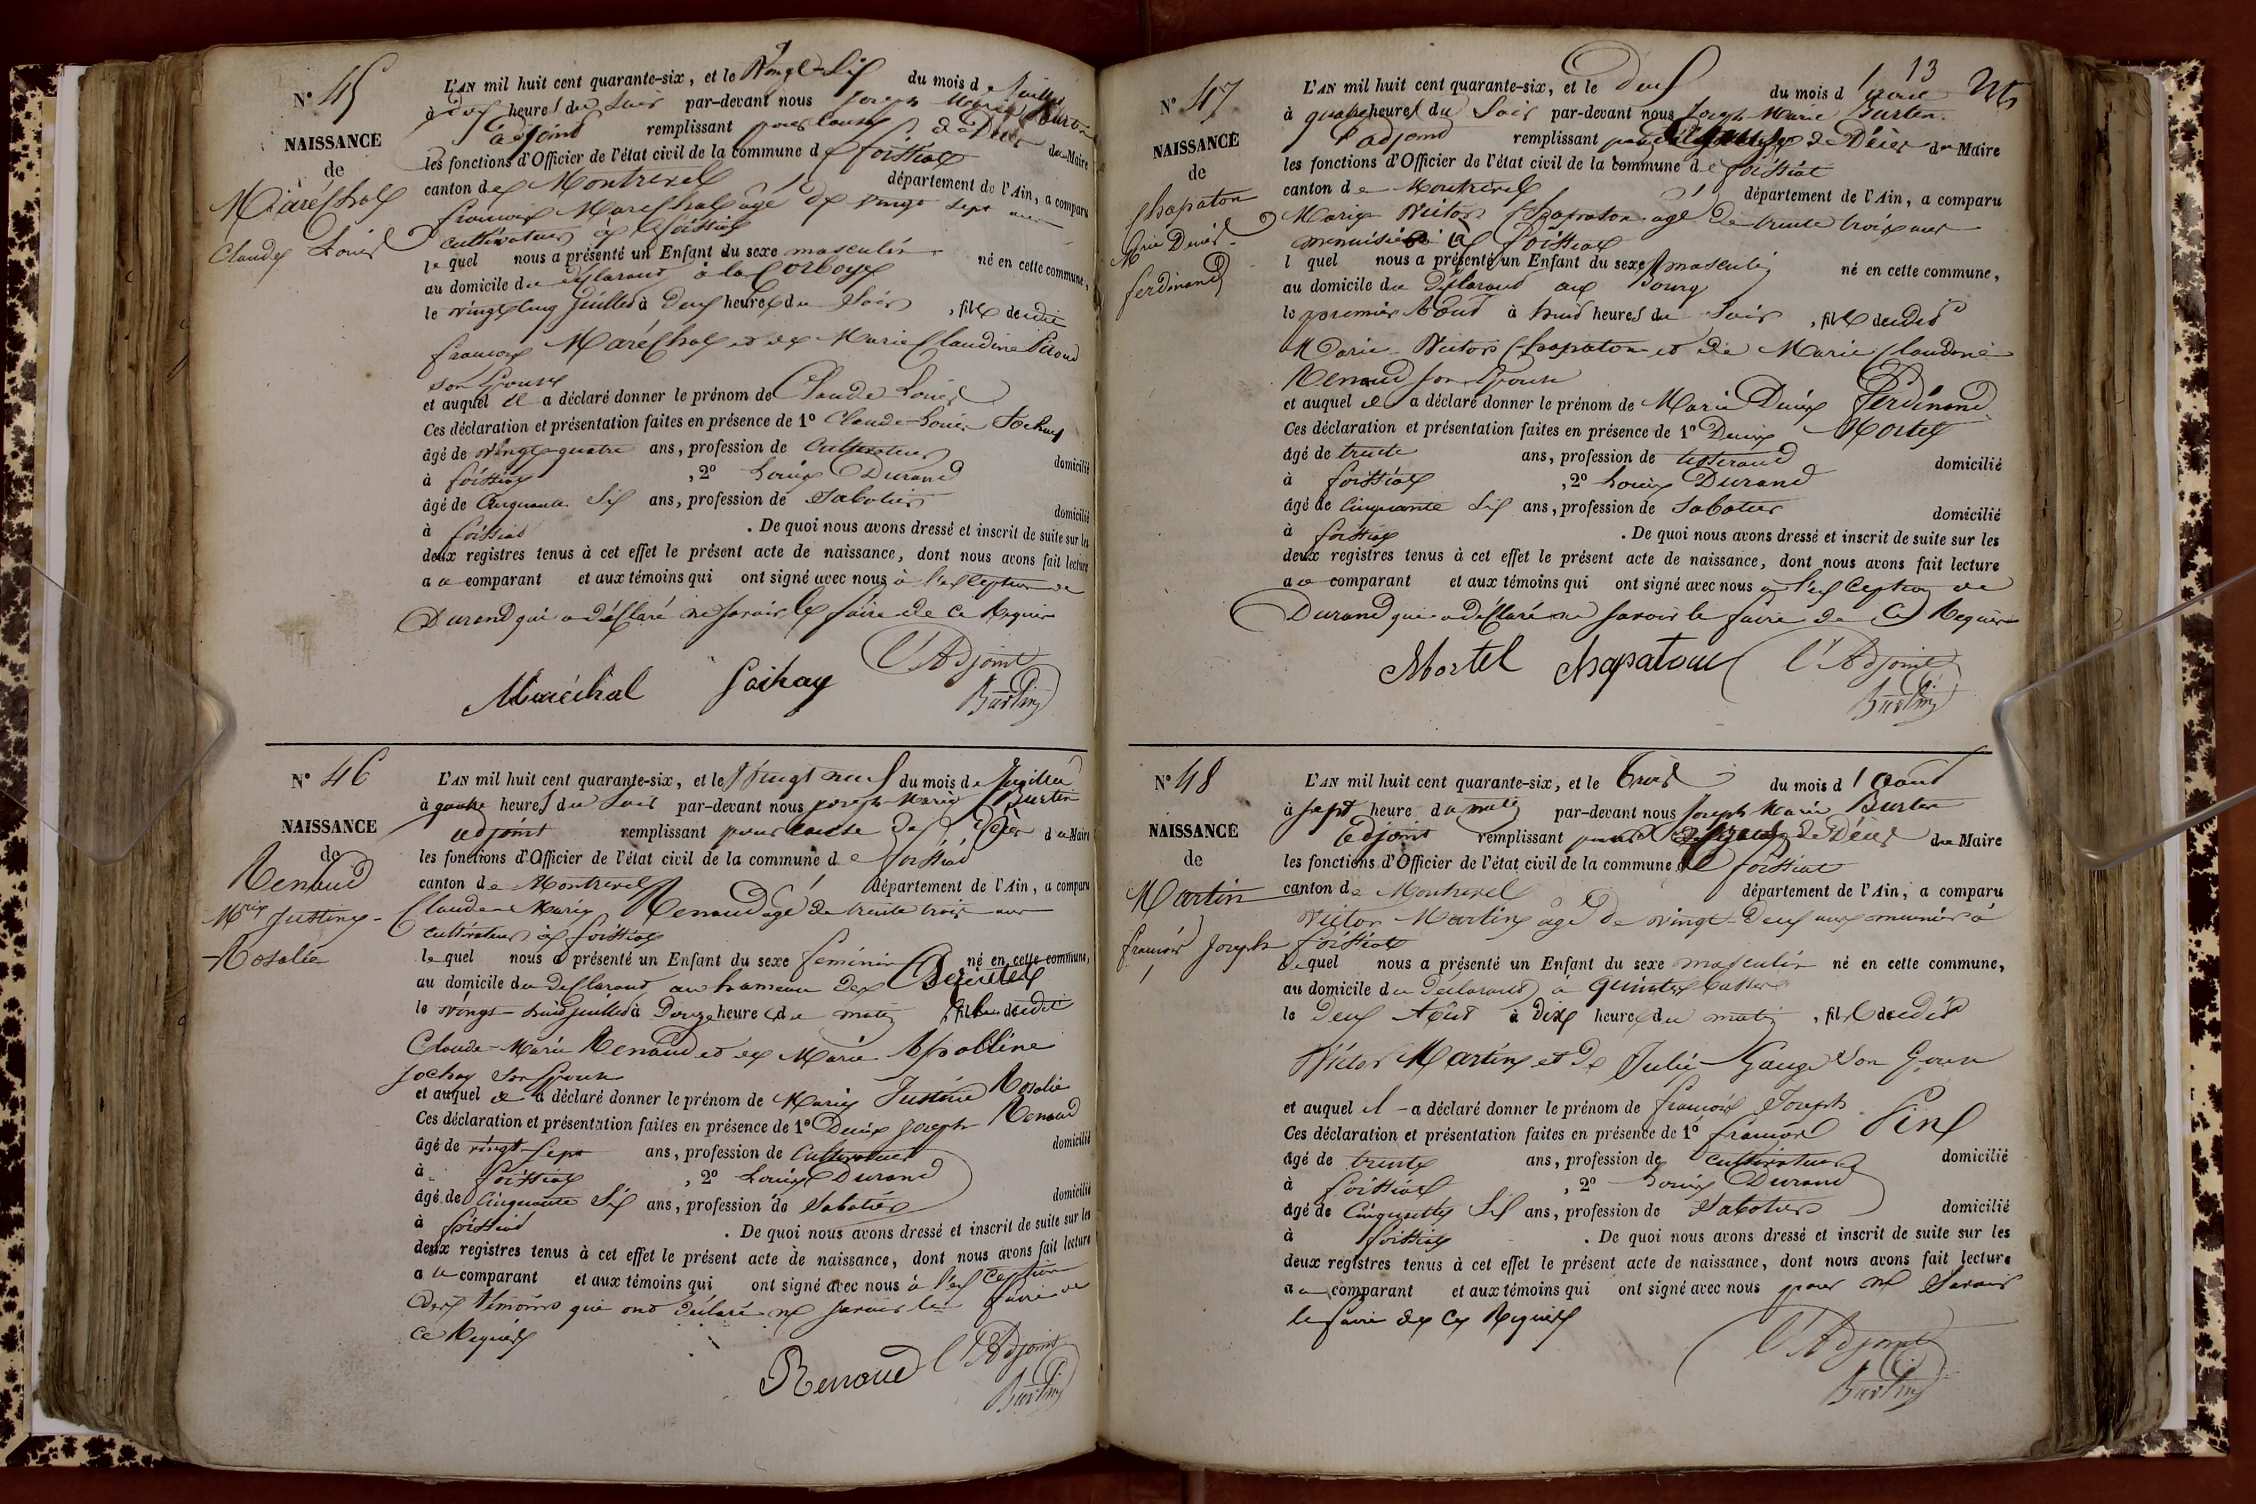 N° 45
NAISSANCE
de
Maréchal
Claude Louis
L'AN mil huit cent quarante-six, et le Vingt-Six du mois de Juillet
à six heures du Soir par-devant nous Joseph Marie Burtin
adjoint remplissant pour cause de Décès du Maire
les fonctions d'Officier de l'état civil de la commune de foissiat
canton de Montrevel département de l'Ain, a comparu
francois Maréchal âgé de vingt sept ans
cultivateur à foissiat
lequel nous a présenté un Enfant du sexe masculin né en cette commune,
au domicile du déclarant à la
le vingt cinq juillet à Deux heures du Soir, fils dudit
francois Maréchal et de Marie Claudine
son Epouse
et auquel il a déclaré donner le prénom de Claude Louis
Ces déclaration et présentation faites en présence de 1° Claude Louis Jochay
âgé de vingt quatre ans, profession de Cultivateur domicilié
à foissiat, 2° Louis Durand
âgé de Cinquante Six ans, profession de Sabotier domicilié
à foissiat. De quoi nous avons dressé et inscrit de suite sur les
deux registres tenus à cet effet le présent acte de naissance, dont nous avons fait lecture
au comparant et aux témoins qui ont signé avec nous à l'exception de
Durand qui a déclaré ne savoir le faire de ce Requis
Maréchal Jochay L'Adjoint
Burtin
N° 46
NAISSANCE
de
Renaud
Mrie Justine
Rosalie
L'AN mil huit cent quarante-six, et le Vingt neuf du mois de Juillet
à quatre heures du Soir par-devant nous joseph Marie Burtin
adjoint remplissant pour cause de Décès du Maire
les fonctions d'Officier de l'état civil de la commune de foissiat
canton de Montrevel département de l'Ain, a comparu
Claude Marie Renaud âgé de trente trois ans
cultivateur à foissiat
lequel nous a présenté un Enfant du sexe féminin né en cette commune,
au domicile du déclarant au hameau des
le vingt-huit juillet à Douze heures du matin, fille dudit
Claude-Marie Renaud et de Marie Appolline
Jochay Son Epouse
et auquel il a déclaré donner le prénom de Marie Justine Rosalie
Ces déclaration et présentation faites en présence de 1° Denis Joseph Renaud
âgé de vingt-sept ans, profession de Cultivateur domicilié
à foissiat, 2° Louis Durand
âgé de Cinquante Six ans, profession de Sabotier domicilié
à foissiat. De quoi nous avons dressé et inscrit de suite sur les
deux registres tenus à cet effet le présent acte de naissance, dont nous avons fait lecture
au comparant et aux témoins qui ont signé avec nous à l'exception
des témoins qui ont déclaré ne savoir le faire de
ce Requis
Renaud L'Adjoint
Burtin
13
N° 47
NAISSANCE
de
Chapaton
Mrie Denis
ferdinand
L'AN mil huit cent quarante-six, et le Deux du mois d'Aout
à quatre heures du Soir par-devant nous Joseph Marie Burtin
l'adjoint remplissant pour de Décès du Maire
les fonctions d'Officier de l'état civil de la commune de foissiat
canton de Montrevel département de l'Ain, a comparu
Marie Victor Chapaton âgé de trente trois ans
menuisier à foissiat
lequel nous a présenté un Enfant du sexe masculin né en cette commune,
au domicile du déclarant au Bourg
le premier Aout à huit heures du Soir, fils dudit
Marie Victor Chapaton et de Marie Claudine
Renaud son Epouse
et auquel il a déclaré donner le prénom de Marie Denis Ferdinand
Ces déclaration et présentation faites en présence de 1° Denis Mortel
âgé de trente ans, profession de tisserand domicilié
à foissiat, 2° Louis Durand
âgé de Cinquante Six ans, profession de Sabotier domicilié
à foissiat. De quoi nous avons dressé et inscrit de suite sur les
deux registres tenus à cet effet le présent acte de naissance, dont nous avons fait lecture
au comparant et aux témoins qui ont signé avec nous à l'exception de
Durand qui a déclaré ne savoir le faire de ce Requis
Mortel Chapaton L'Adjoint
Burtin
N° 48
NAISSANCE
de
Martin
francois Joseph
L'AN mil huit cent quarante-six, et le trois du mois d'Aout
à sept heures du matin par-devant nous Joseph Marie Burtin
adjoint remplissant pour de Décès du Maire
les fonctions d'Officier de l'état civil de la commune de foissiat
canton de Montrevel département de l'Ain, a comparu
Victor Martin âgé de vingt-Deux ans meunier à
foissiat
lequel nous a présenté un Enfant du sexe masculin né en cette commune,
au domicile du déclarant à
le Deux Aout à Dix heures du matin, fils dudit
Victor Martin et de Julie Gauge Son Epouse
et auquel il a déclaré donner le prénom de francois Joseph
Ces déclaration et présentation faites en présence de 1° francois
âgé de trente ans, profession de cultivateur domicilié
à foissiat, 2° Louis Durand
âgé de Cinquante Six ans, profession de Sabotier domicilié
à foissiat. De quoi nous avons dressé et inscrit de suite sur les
deux registres tenus à cet effet le présent acte de naissance, dont nous avons fait lecture
au comparant et aux témoins qui ont signé avec nous pour ne Savoir
le faire de ce Requis
L'Adjoint
Burtin